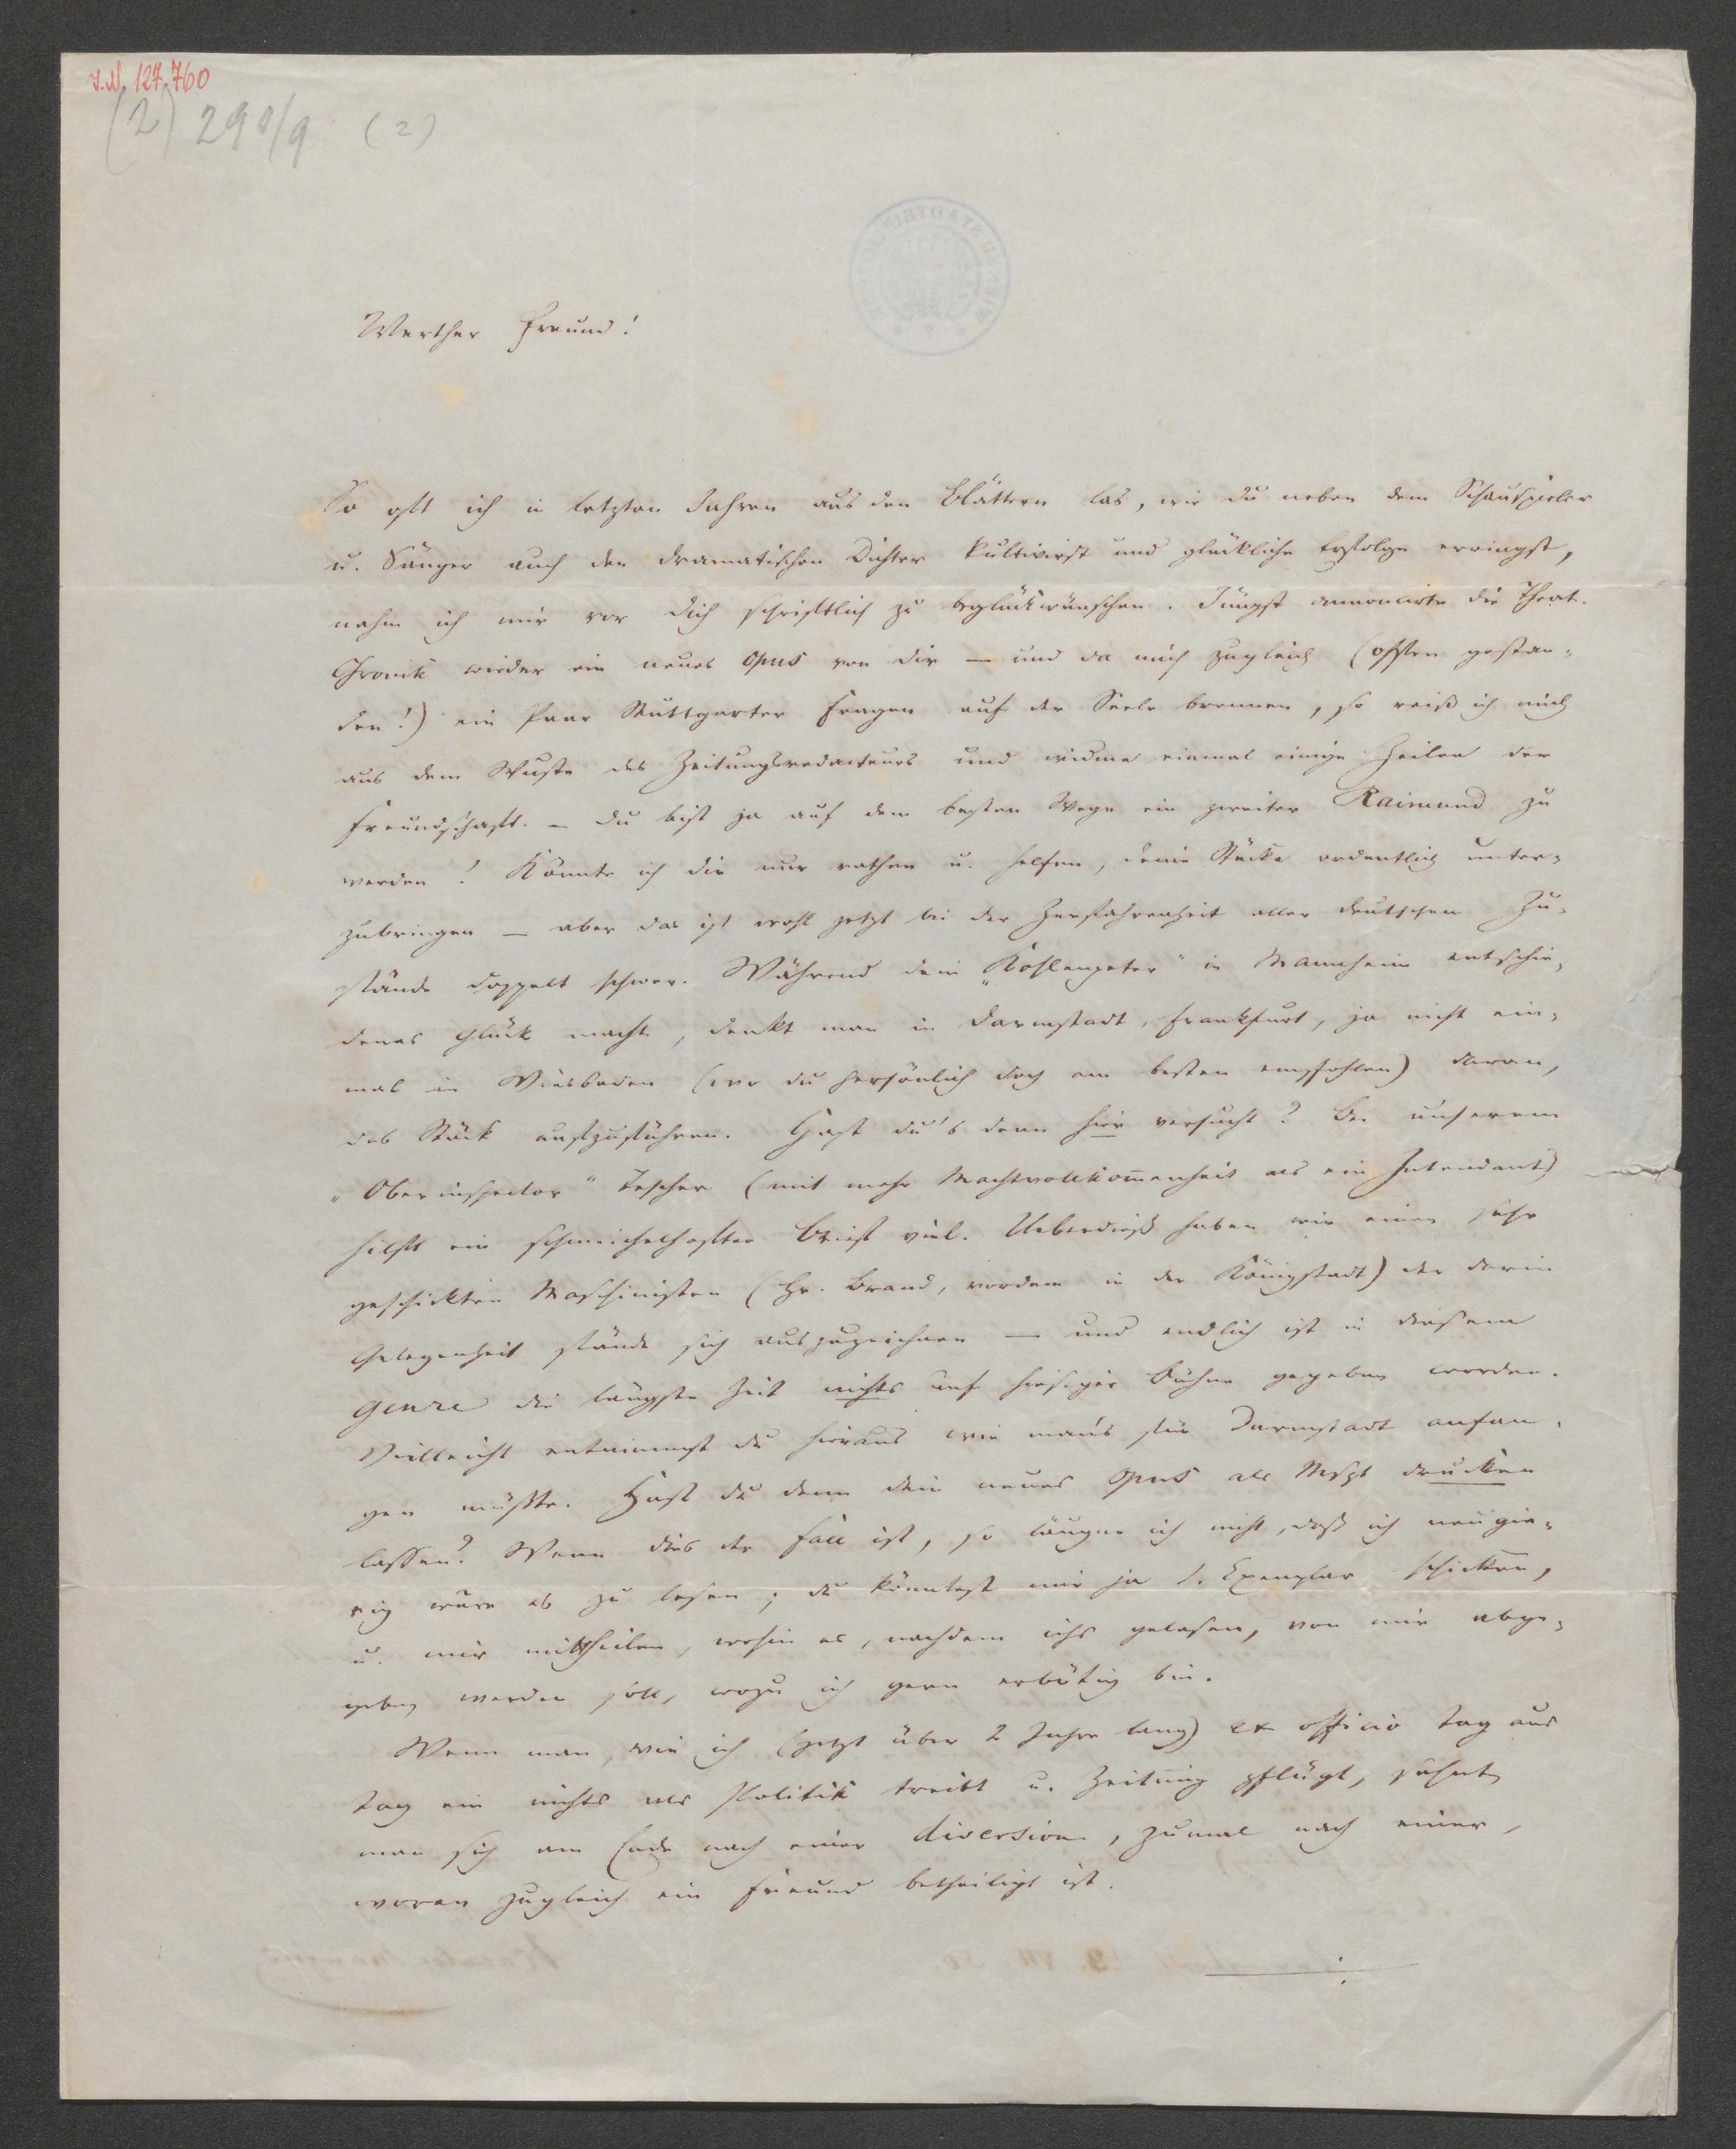 I.N. 127.760
(2) 290/9 (2)
Werther Freund!
So oft ich in letzten Jahren aus den Blättern las, wie du neben dem Schauspieler
u. Sänger auch den dramatischen Dichter kultivirst und glückliche Erfolge erringst,
nahm ich mir vor dich schriftlich zu beglückwünschen. Jüngst annoncirte die Theat.
Chronik wieder ein neues opus von dir – und da mich zugleich (offen gestan-
den!) ein Paar Stuttgarter Fragen auf der Seele brennen, so reiß ich mich
aus dem Wuste des Zeitungsredacteurs und widme einmal einige Zeilen der
Freundschaft. – Du bist ja auf dem besten Wege ein zweiter Raimund zu
werden! Könnte ich dir nur rathen u. helfen, deine Stücke ordentlich unter-
zubringen – aber das ist wohl jetzt bei der Zerfahrenheit aller deutschen Zu-
stände doppelt schwer. Während dein „Kohlenpeter" in Mannheim entschie-
denes Glück macht, denkt man in Darmstadt, Frankfurt, ja nicht ein-
mal in Wiesbaden (wo du persönlich doch am besten empfohlen) daran,
das Stück aufzuführen. Hast du's denn hier versucht? Bei unserem
„Oberinspector" Tescher (mit mehr Machtvollkom̅enheit als ein Intendant)
hilft ein schmeichelhafter Brief viel. Ueberdieß haben wir einen sehr
geschickten Maschinisten (Hr. Brand, vordem in der Königstadt) der darin
Gelegenheit fände sich auszuzeichnen – und endlich ist in diesem
genre die längste Zeit nichts auf hiesiger Bühne gegeben worden.
Vielleicht entnimmst du hieraus wie man's für Darmstadt anfan-
gen müßte. Hast du denn dein neues opus als Mspt drucken
lassen? Wenn dies der Fall ist, so läugne ich nicht, daß ich neugie-
rig wäre es zu lesen; du könntest mir ja 1. Exemplar schicken,
u. mir mittheilen, wohin es, nachdem ichs gelesen, von mir abge-
geben werden soll, wozu ich gern erbötig bin.
Wenn man, wie ich (jetzt über 2 Jahre lang) ex officio Tag aus
Tag ein nichts als Politik treibt u. Zeitung pflügt, sehnt
man sich am Ende nach einer diversion, zumal nach einer,
woran zugleich ein Freund betheiligt ist.